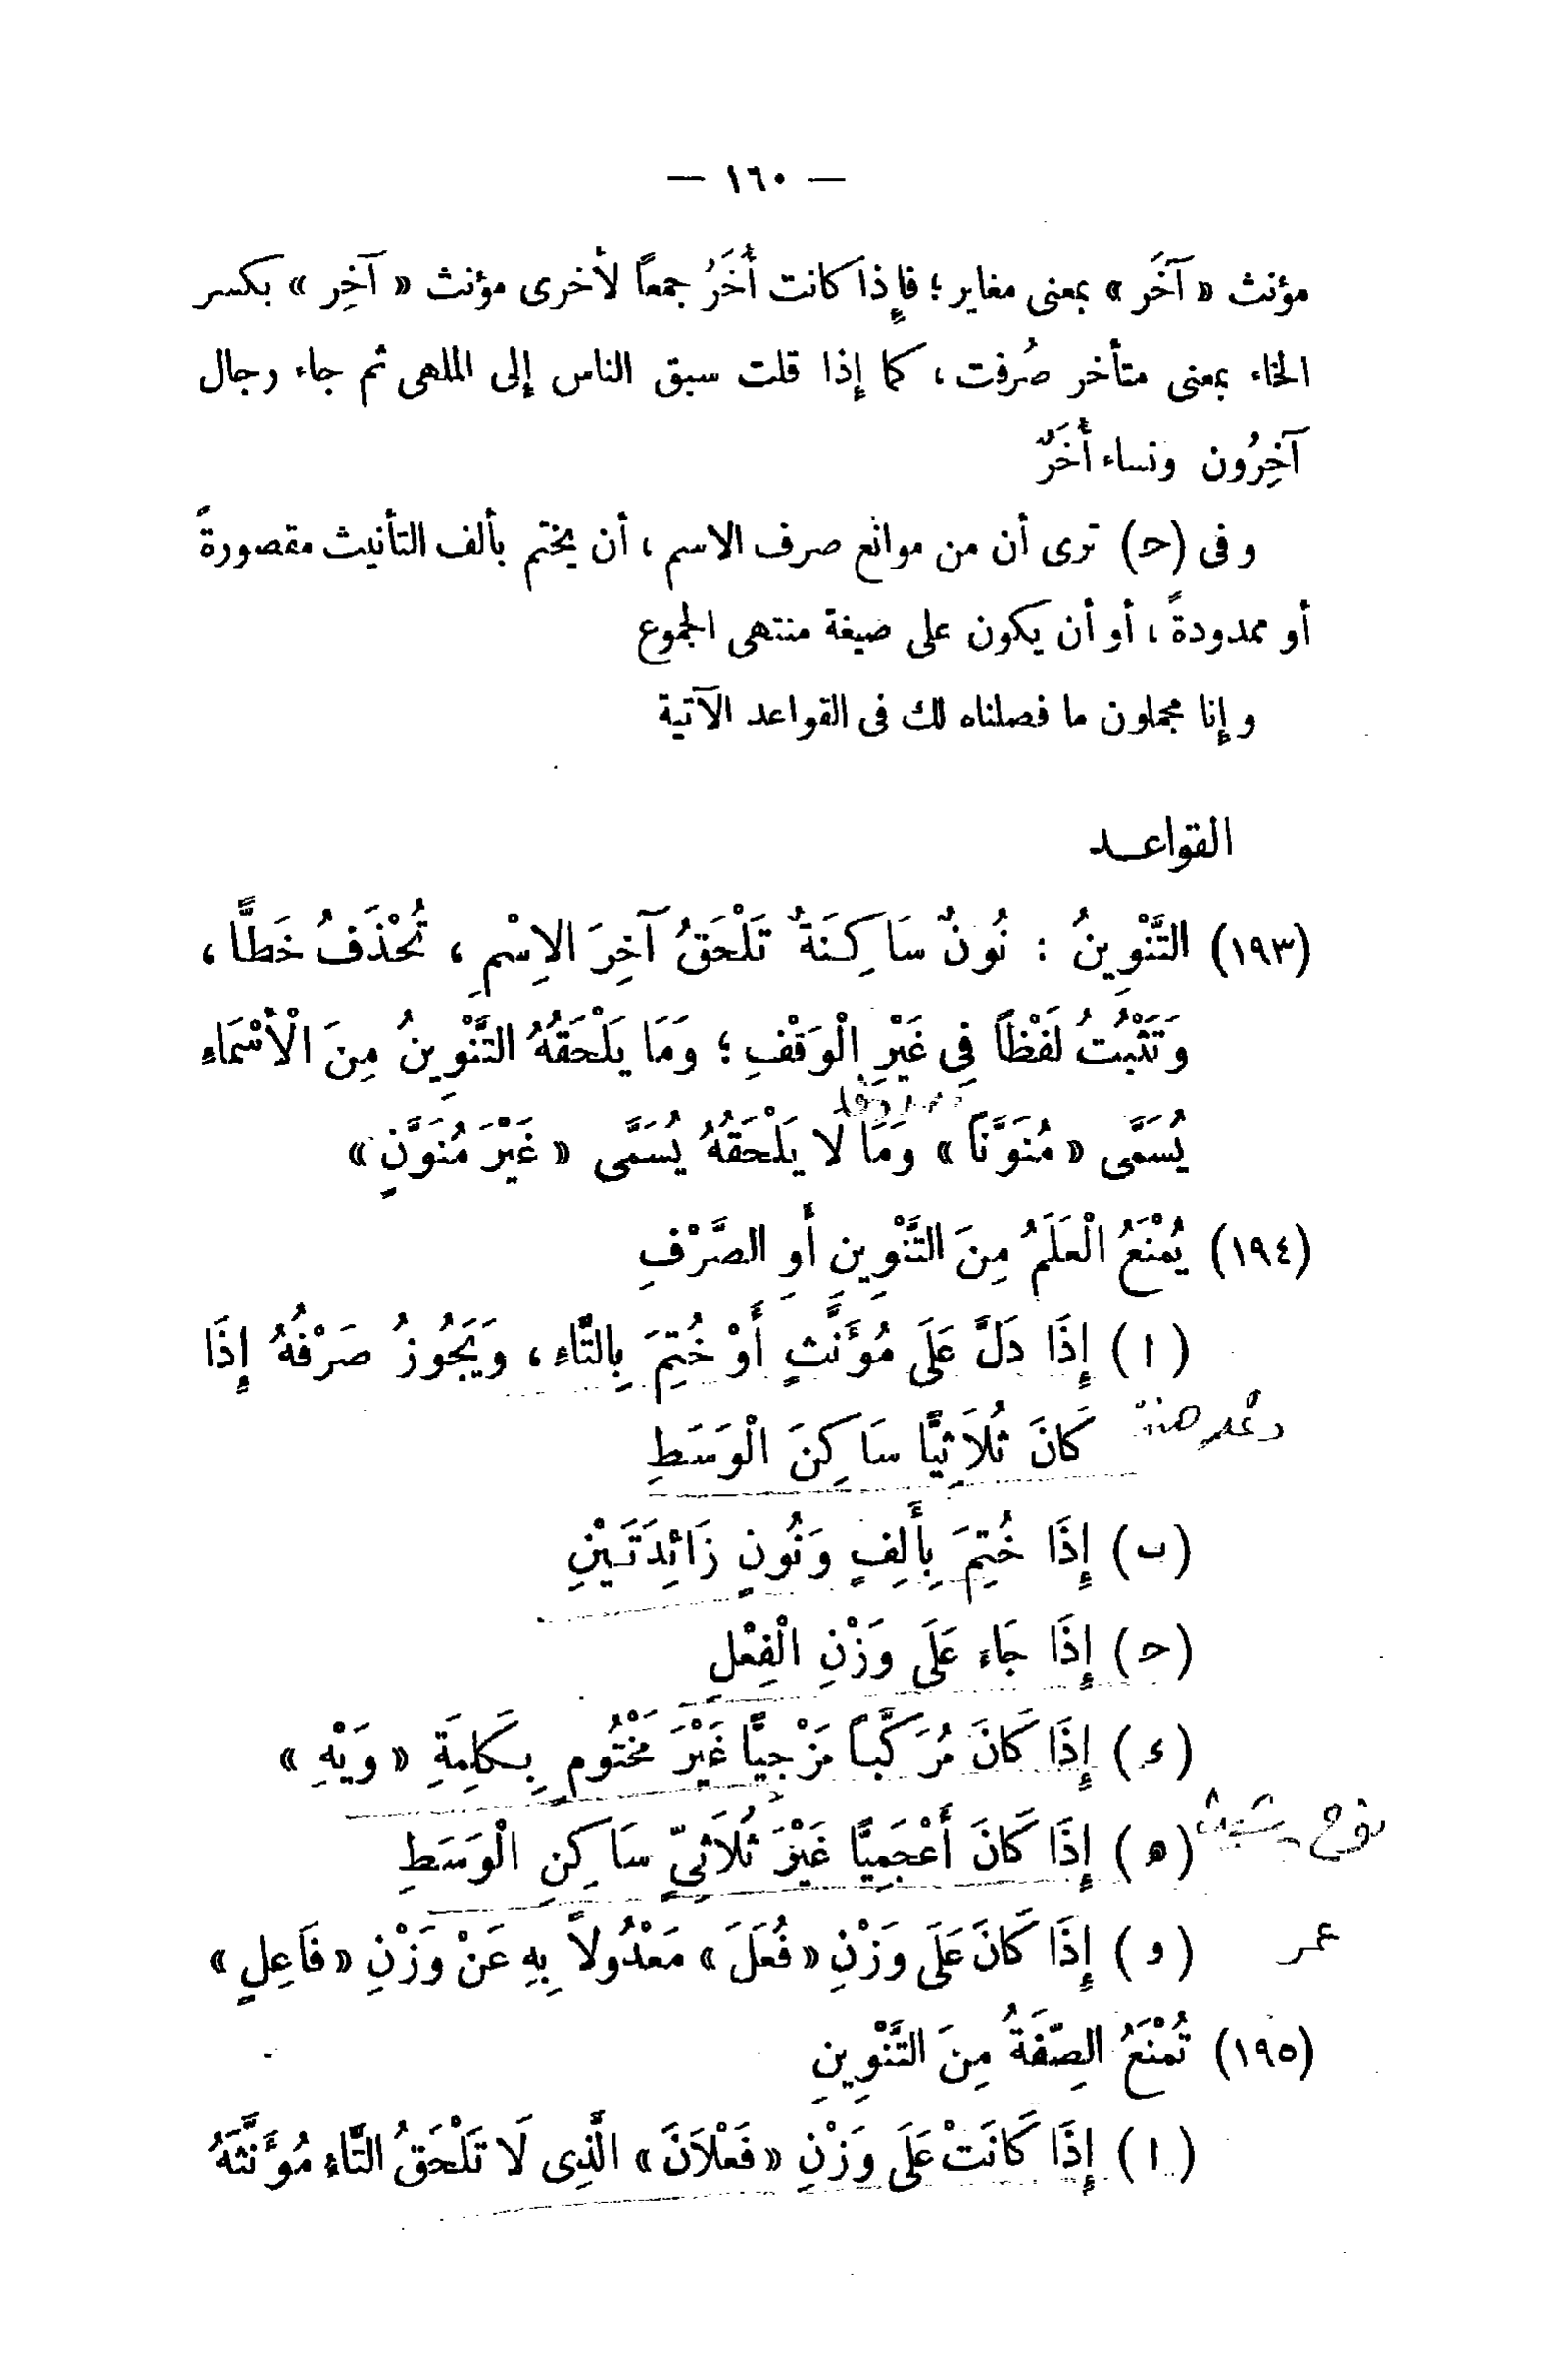 — ١٦٠ —
مؤنث « آخَر » بمعنى مغاير ؛ فإذا كانت أُخَرُ جمعاً لأخرى مؤنث « آخِر » بكسر
الخاء بمعنى متأخر صُرفت ، كما إذا قلت سبق الناس إلى الملهى ثم جاء رجال
آخِرُون ونساء أُخَرٌ
وفى (حـ) ترى أن من موانع صرف الاسم ، أن يختم بألف التأنيث مقصورةً
أو ممدودةً ، أو أن يكون على صيغة منتهى الجموع
وإنا مجملون ما فصلناه لك فى القواعد الآتية
القواعـــد
(١٩٣) التَّنْوِينُ : نُونٌ سَاكِنَةٌ تَلْحَقُ آخِرَ الِاسْمِ ، تُحْذَفُ خَطًّا ،
وَتَثْبُتُ لَفْظاً فِى غَيْرِ الْوَقْفِ ؛ وَمَا يَلْحَقُهُ التَّنْوِينُ مِنَ الْأَسْمَاءِ
يُسَمَّى « مُنَوَّناً » وَمَا لَا يَلْحَقُهُ يُسَمَّى « غَيْرَ مُنَوَّنٍ »
(١٩٤) يُمْنَعُ الْعَلَمُ مِنَ التَّنْوِينِ أَوِ الصَّرْفِ
( ا ) إِذَا دَلَّ عَلَى مُؤَنَّثٍ أَوْ خُتِمَ بِالتَّاءِ ، وَيَجُوزُ صَرْفُهُ إِذَا
كَانَ ثُلَاثِيًّا سَاكِنَ الْوَسَطِ
(ب) إِذَا خُتِمَ بِأَلِفٍ وَنُونٍ زَائِدَتَيْنِ
(حـ) إِذَا جَاءَ عَلَى وَزْنِ الْفِعْلِ
(ء) إِذَا كَانَ مُرَكَّباً مَزْجِيًّا غَيْرَ مَخْتُومٍ بِكَلِمَةِ « وَيْهِ »
(ه) إِذَا كَانَ أَعْجَمِيًّا غَيْرَ ثُلَاثِىٍّ سَاكِنِ الْوَسَطِ
نوح
(و) إِذَا كَانَ عَلَى وَزْنِ « فُعَلَ » مَعْدُولاً بِهِ عَنْ وَزْنِ « فَاعِلٍ »
عمر
(١٩٥) تُمْنَعُ الصِّفَةُ مِنَ التَّنْوِينِ
( ا ) إِذَا كَانَتْ عَلَى وَزْنِ « فَعْلَانَ » الَّذِى لَا تَلْحَقُ التَّاءُ مُؤَنَّثَهُ